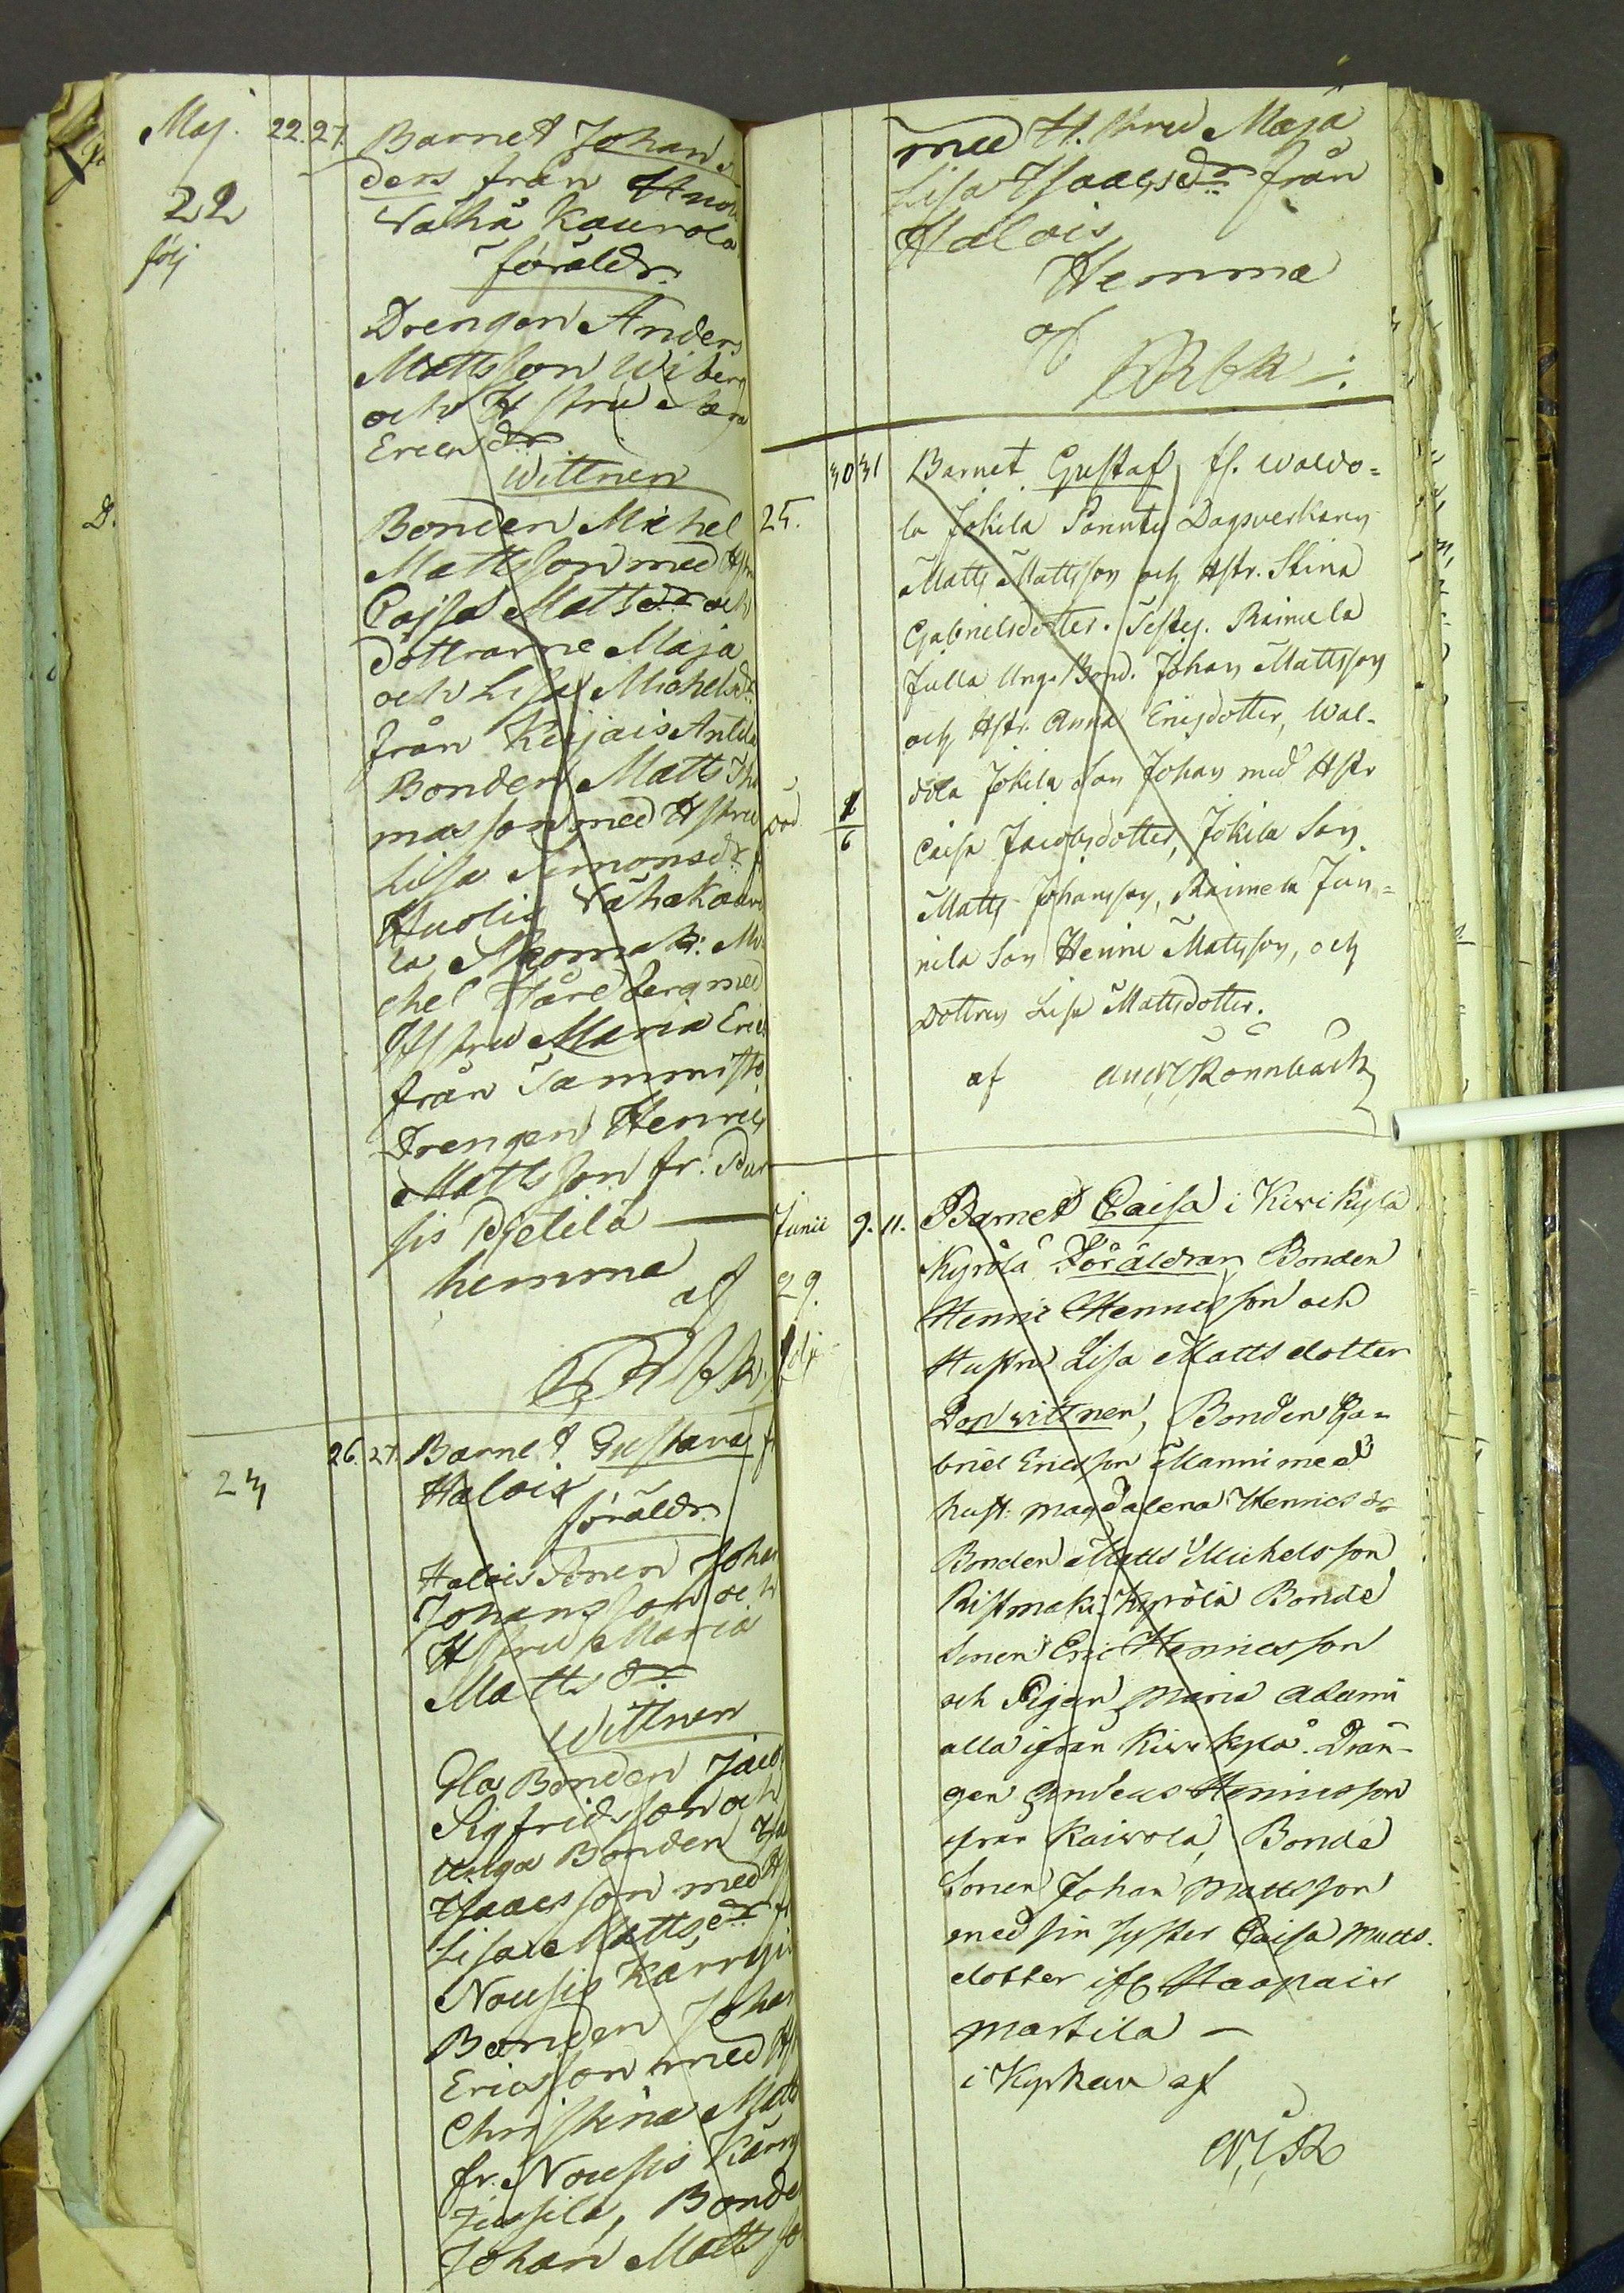 Maj. 22. 27. Barnet Johan
22 ders från
följ Vähä Kaurola
föräldr.
Drengen Anders
Mattsson Wiberg
och Hstru
Ericsdr
Wittnen
D. Bonden Michel
Mattsson med Hstru
Cajsa Mattsdr och
döttrarne Maja
och Lisa Michelsdr
från Keijais Antila
Bonden Matts Tho
masson med Hstru
Lisa Simonsdr f
Huolis Vähakaur
la Skomak: Mi
chel Hårdberg med
Hstru Maria Eric
från Tammisto
Drengen Henric
Mattsson fr.
sis Pietilä
hemma
af
26. 27. Barnet Gustava f
23 Halois
föräldr.
Halois Sonen Johan
Johansson och
Hstru Maria
Mattsdr
Wittnen
Gla Bonden Jacob
Sigfridsson och
Unga Bonden Isa
Isaacsson med H
Lisa Mattsdr fr
Nousis Kärry
Bonden Johan
Ericsson med H
Christina Matts
fr. Nousis Kärry
Jussila, Bonde
Johan Mattsso
med H. stru Maja
Lisa Isaacsdr från
Halois
Hemma
af
30 31 Barnet Gustaf fr. Waldo=
25. la Jokila Dagsverkaren
Matts Mattsson och Hstr. Stina
Gabrielsdotter. Test. Raimela
Julla Unga Bond. Johan Mattsson
och Hstr. Anna Ericsdotter, Wal-
dola Jokila Son Johan med Hstr
död 1/6 Caisa Jacobsdotter, Jokila Son
Matts Johansson, Raimela Jun=
nila Son Henric Mattsson, och
Dottren Lisa Mattsdotter.
af And Rönnbäck
Junii 9. 11. Barnet Caisa i Kivikylä
29. Kyrölä Föräldrar Bonden
följ Henric Henricsson och
Hustru Lisa Mattsdotter
Dopwittnen, Bonden Ga=
briel Ericsson Manni med
hust: Magdalena Henricsdr
Bonden Matts Michelsson
Ristmäki Kyrölä Bonde
Sonen Eric Henricsson
och Pigan Maria Adami
alla ifrån Kivikylä. Drän-
gen Andeus Henricsson
från Kaivola, Bonde
Sonen Johan Mattsson
med sin syster Caisa Matts-
dotter ifr. Haapais
Martila —
i Kyrkan af